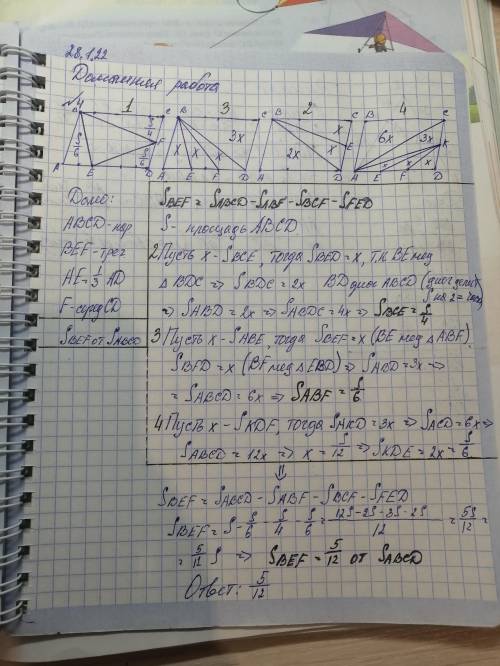 28.1.22
Домашняя работа
№4
1 3 2 4
Дано:
ABCD - пар
BEF - треу
AE = 1/3 AD
F - серед CD
S BEF от S ABCD
S BEF = S ABCD - S ABF - S BCF - S FED
S - площадь ABCD
2 Пусть x - S BCE, тогда S BED = x, т.к BE мед
△ BDC ⇒ S BDC = 2x BD диаг ABCD (диаг делит
⇒ S ABD = 2x ⇒ S ABDC = 4x ⇒ S BCE = S/4
3 Пусть x - S ABE, тогда S BEF = x (BE мед △ ABF)
S BFD = x (BF мед △ EBD) ⇒ S ABD = 3x ⇒
= S ABCD = 6x ⇒ S ABF = S/6
4 Пусть x - S KDF, тогда S AKD = 3x ⇒ S ACD = 6x ⇒
S ABCD = 12x ⇒ x = S/12 ⇒ S KDE = 2x = S/6
⇓
S BEF = S ABCD - S ABF - S BCF - S FED
S BEF = S - S/6 - S/4 - S/6 = (12S - 2S - 3S - 2S)/12 = 5S/12 =
= 5/12 S ⇒ S BEF = 5/12 от S ABCD
Ответ: 5/12